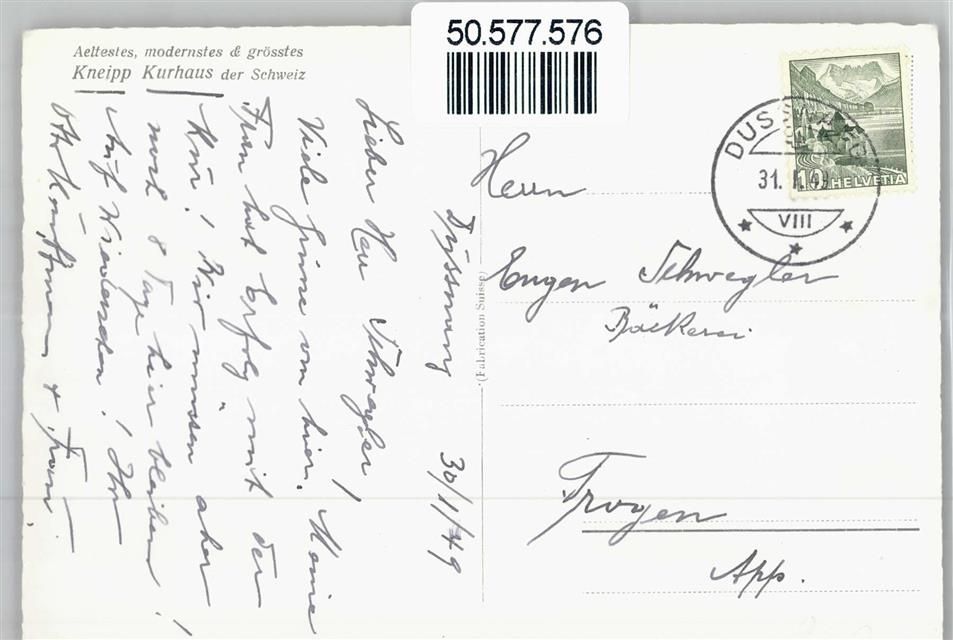 50.577.576
Aeltestes, modernstes & grösstes
Kneipp Kurhaus der Schweiz
Dussnang 30/1/49
Lieber Herr Schwegler!
Viele Grüsse von hier. Meine
Frau hat Erfolg mit der
Kur! Wir müssen aber
noch 8 Tage hier bleiben!
Auf Wiedersehen! Ihr
& Frau
(Fabrication Suisse)
DUSSNANG
31. I. 49
VIII
10 HELVETIA
Herrn
Eugen Schwegler
Bäckerei
Trogen
App.